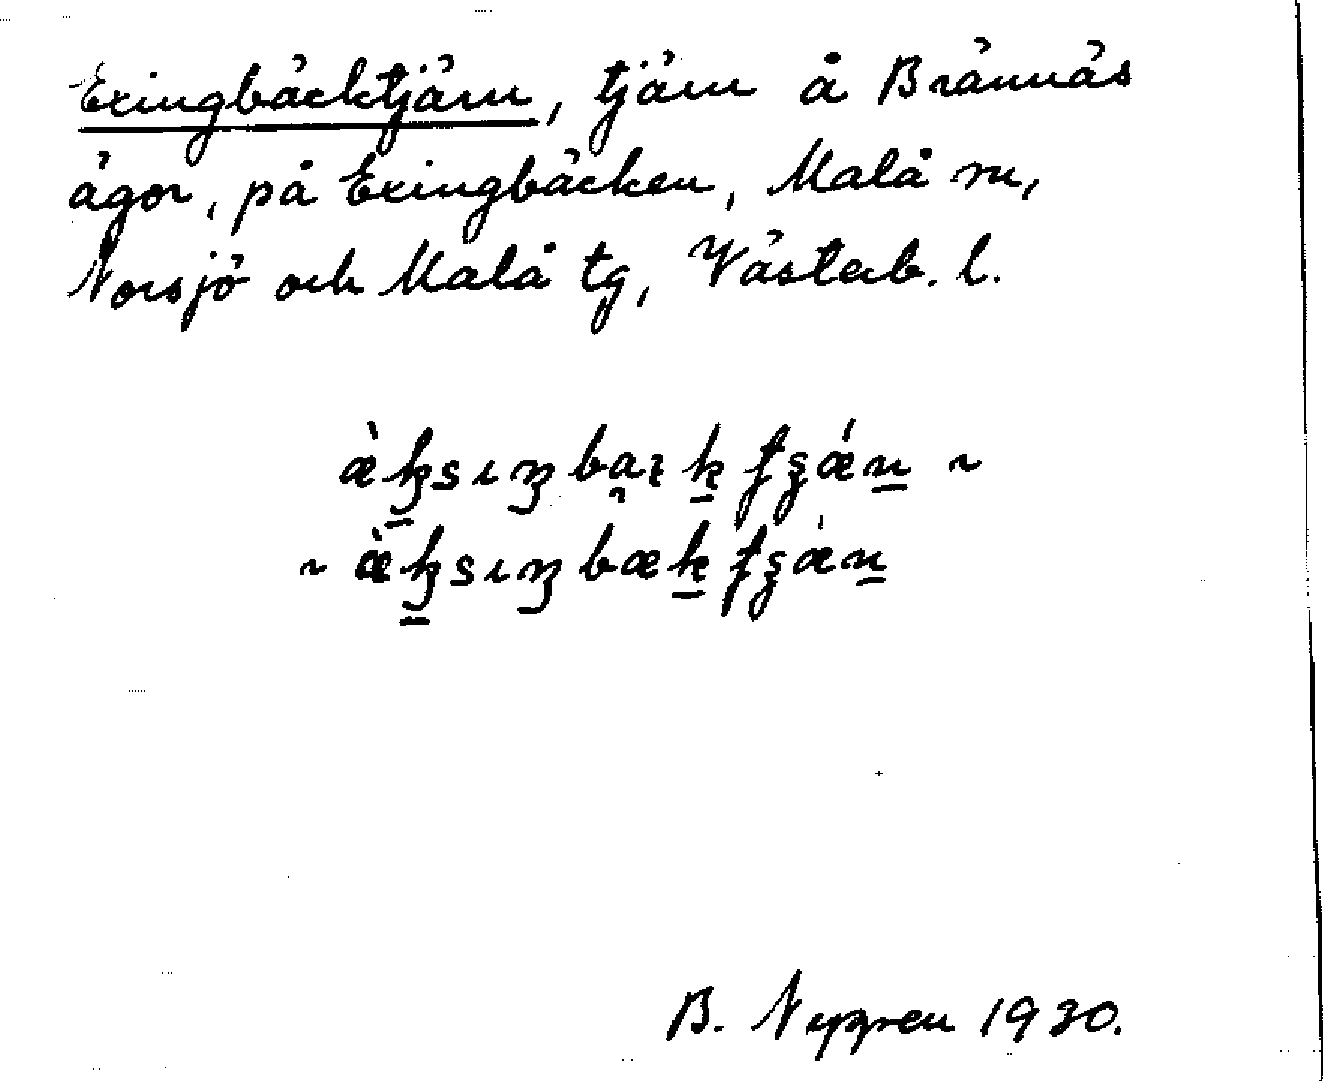 Exingbäcktjärn, tjärn å Brännäs
ägor, på Exingbäcken, Malå sn,
Norsjö och Malå tg, Västerb. l.
B. Nygren 1930.